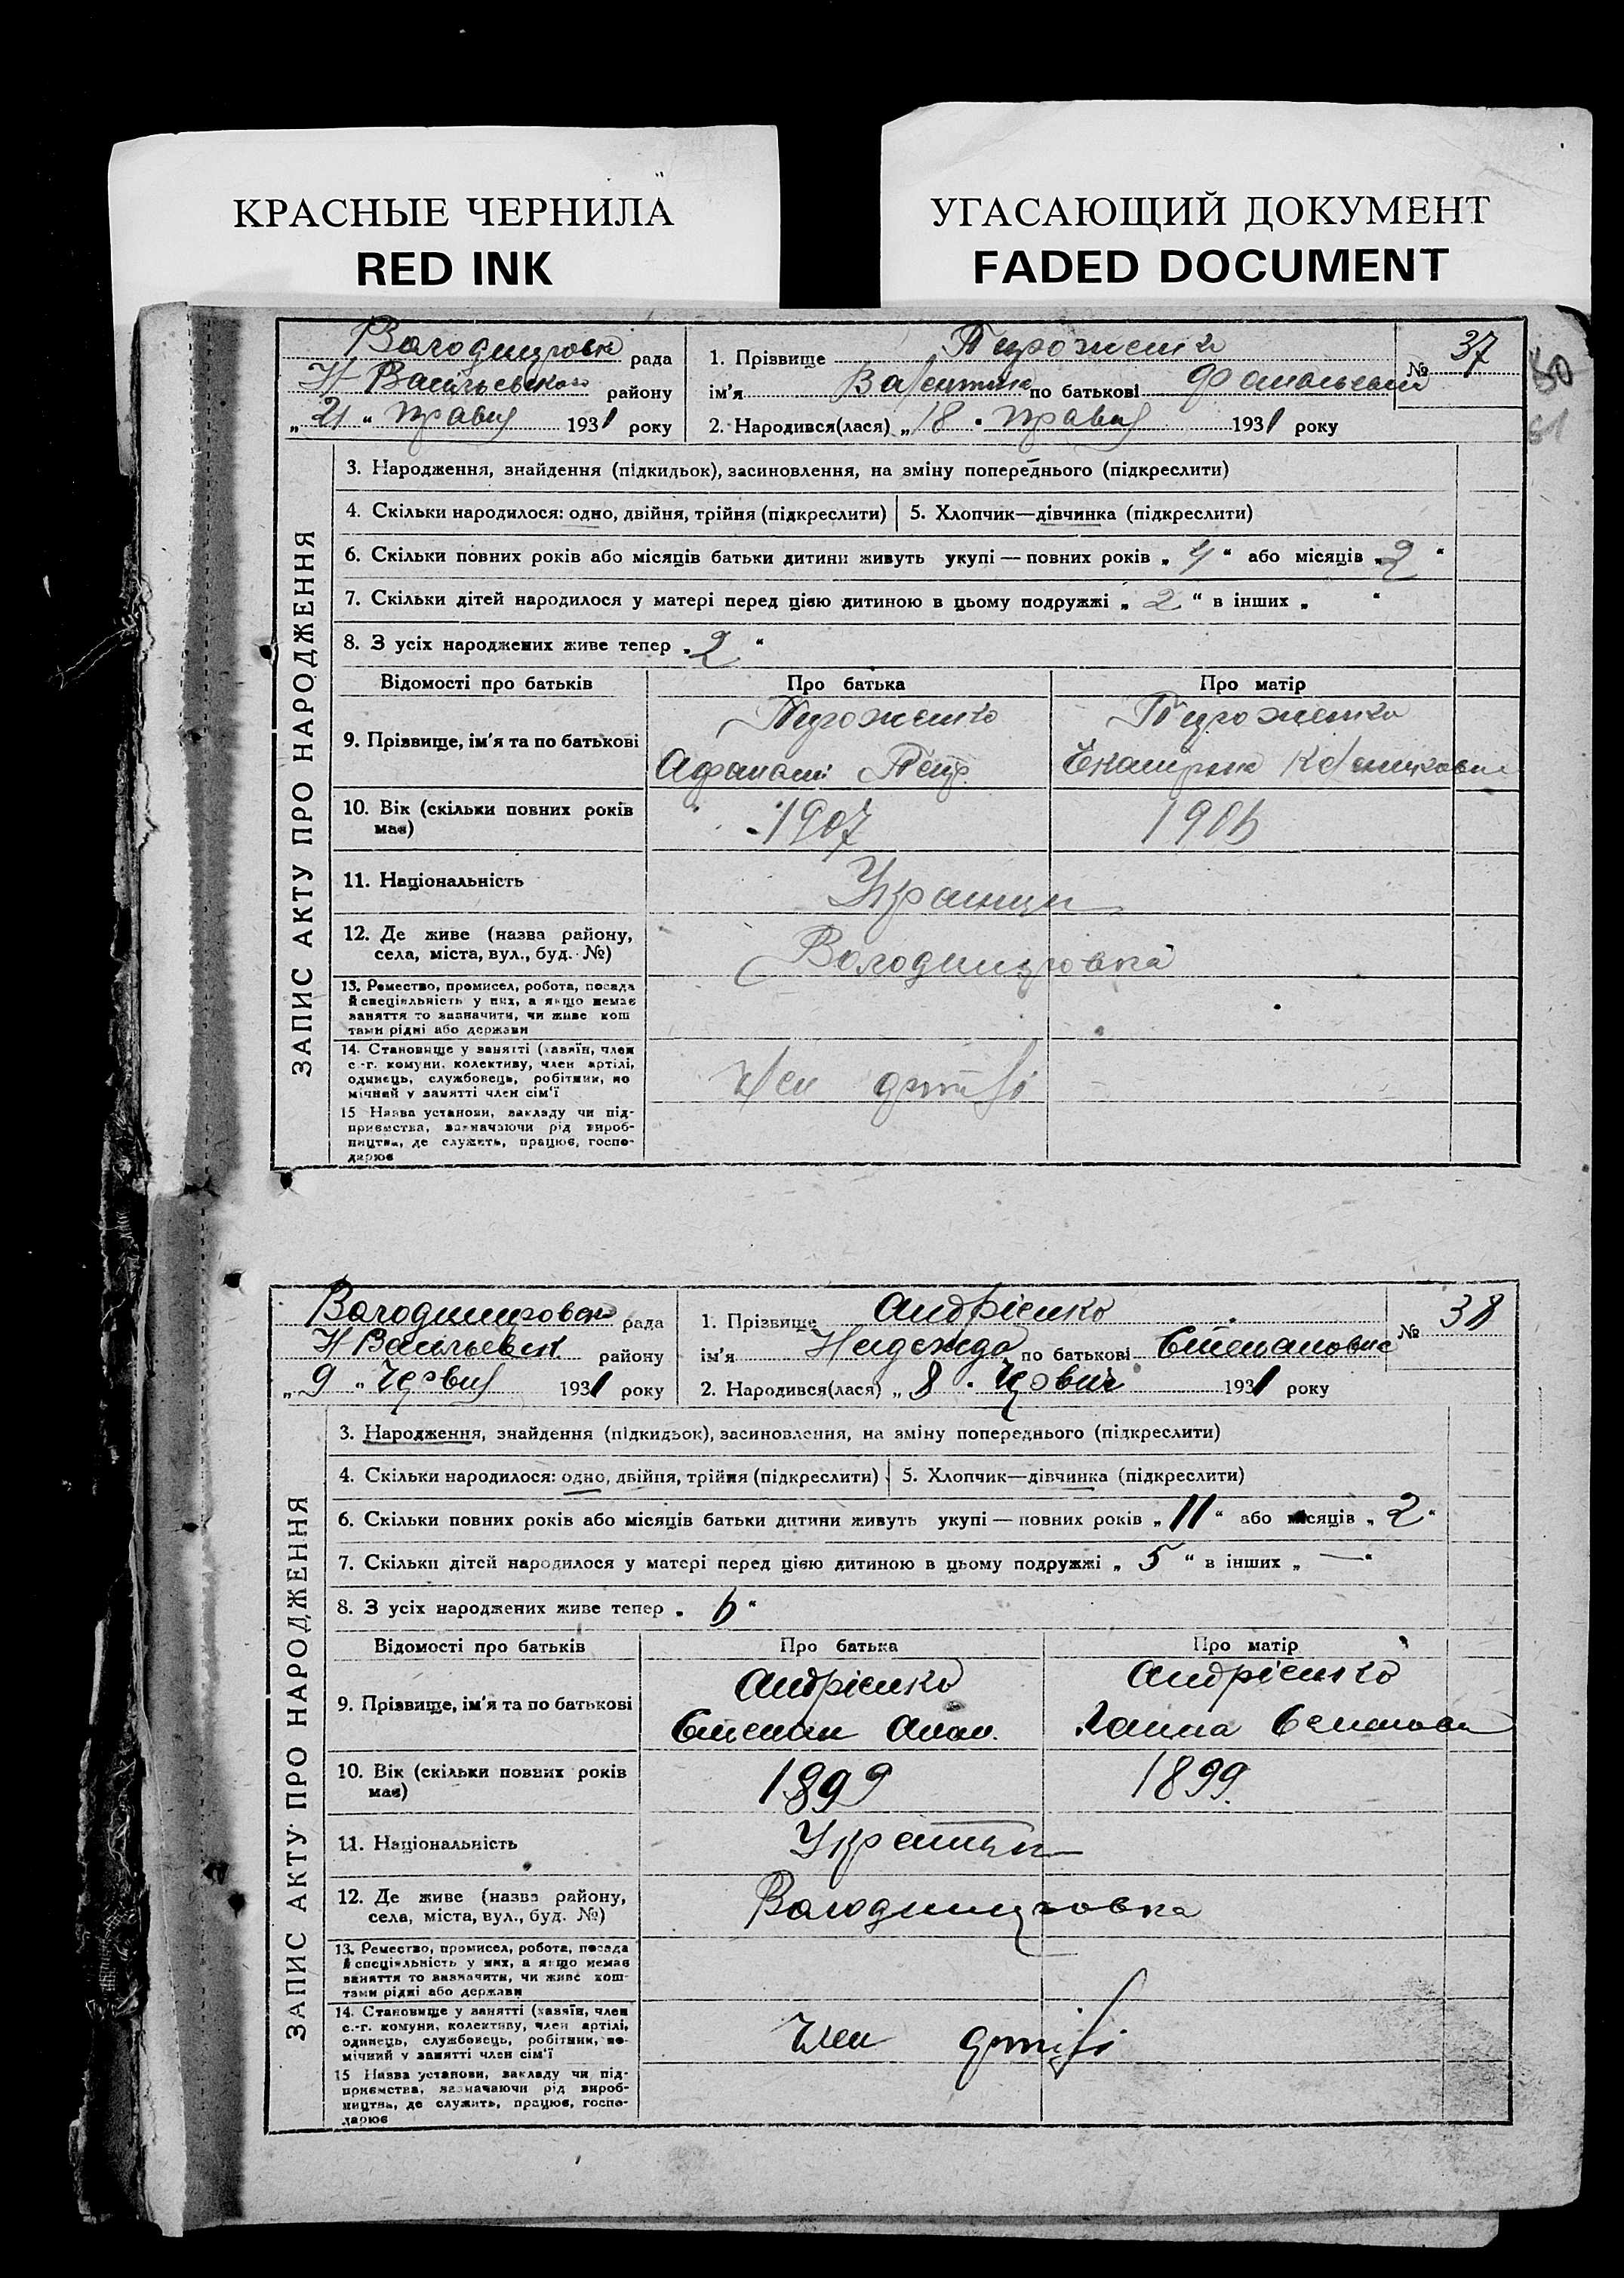 КРАСНЫЕ ЧЕРНИЛА
RED INK
УГАСАЮЩИЙ ДОКУМЕНТ
FADED DOCUMENT
рада
Н Васільевского району
„ 21 “ травня 1931 року
1. Прізвище Пироженко
ім'я Валентина по батькові
2. Народився(лася) „ 18 „ травня 1931 року
№ 37
50
51
ЗАПИС АКТУ ПРО НАРОДЖЕННЯ
3. Народження, знайдення (підкидьок), засиновлення, на зміну попереднього (підкреслити)
4. Скільки народилося: одно, двійня, трійня (підкреслити) 5. Хлопчик—дівчинка (підкреслити)
6. Скільки повних років або місяців батьки дитини живуть укупі — повних років „ 4 “ або місяців „ 2 “
7. Скільки дітей народилося у матері перед цією дитиною в цьому подружжі „ 2 “ в інших „ “
8. З усіх народжених живе тепер „ 2 “
Відомості про батьків Про батька Про матір
9. Прізвище, ім'я та по батькові
Пироженко
Афанасій Петр.
Пироженко
Екатирина
10. Вік (скільки повних років має)
1907
190
11. Національність
Українци
12. Де живе (назва району, села, міста, вул., буд. №)
Володимировка
13. Ремество, промисел, робота, посада
й спеціяльність у них, а якщо немає
заняття то зазначити, чи живе кош
тами рідні або держави
14. Становище у занятті (хазяїн, член
с.-г. комуни, колективу, член артілі,
одинець, службовець, робітник, по
мічний у занятті член сім'ї
член артілі
15 Назва установи, закладу чи під-
приємства, зазначаючи рід вироб-
ництва, де служить, працює, госпо-
дарює
Володимировск рада
Н Васільевск району
„ 9 „ Червня 1931 року
1. Прізвище Андрієнко
ім'я Надежда по батькові Степановна
2. Народився(лася) „ 8 „ Червня 1931 року
№ 38
ЗАПИС АКТУ ПРО НАРОДЖЕННЯ
3. Народження, знайдення (підкидьок), засиновлення, на зміну попереднього (підкреслити)
4. Скільки народилося: одно, двійня, трійня (підкреслити) 5. Хлопчик—дівчинка (підкреслити)
6. Скільки повних років або місяців батьки дитини живуть укупі — повних років „ 11 “ або місяців „ 2 “
7. Скільки дітей народилося у матері перед цією дитиною в цьому подружжі „ 5 “ в інших „ — “
8. З усіх народжених живе тепер „ “
Відомості про батьків Про батька Про матір
9. Прізвище, ім'я та по батькові
Андрієнко
Степан
Андрієнко
Ганна
10. Вік (скільки повних років має)
1899
1899
11. Національність
12. Де живе (назва району, села, міста, вул., буд. №)
Володимировка
13. Ремество, промисел, робота, посада
й спеціяльність у них, а якщо немає
заняття то зазначити, чи живе кош-
тами рідні або держави
14. Становище у занятті (хазяїн, член
с.-г. комуни, колективу, член артілі,
одинець, службовець, робітник, по-
мічний у занятті член сім'ї
Член артілі
15 Назва установи, закладу чи під-
приємства, зазначаючи рід вироб-
ництва, де служить, працює, госпо-
дарює